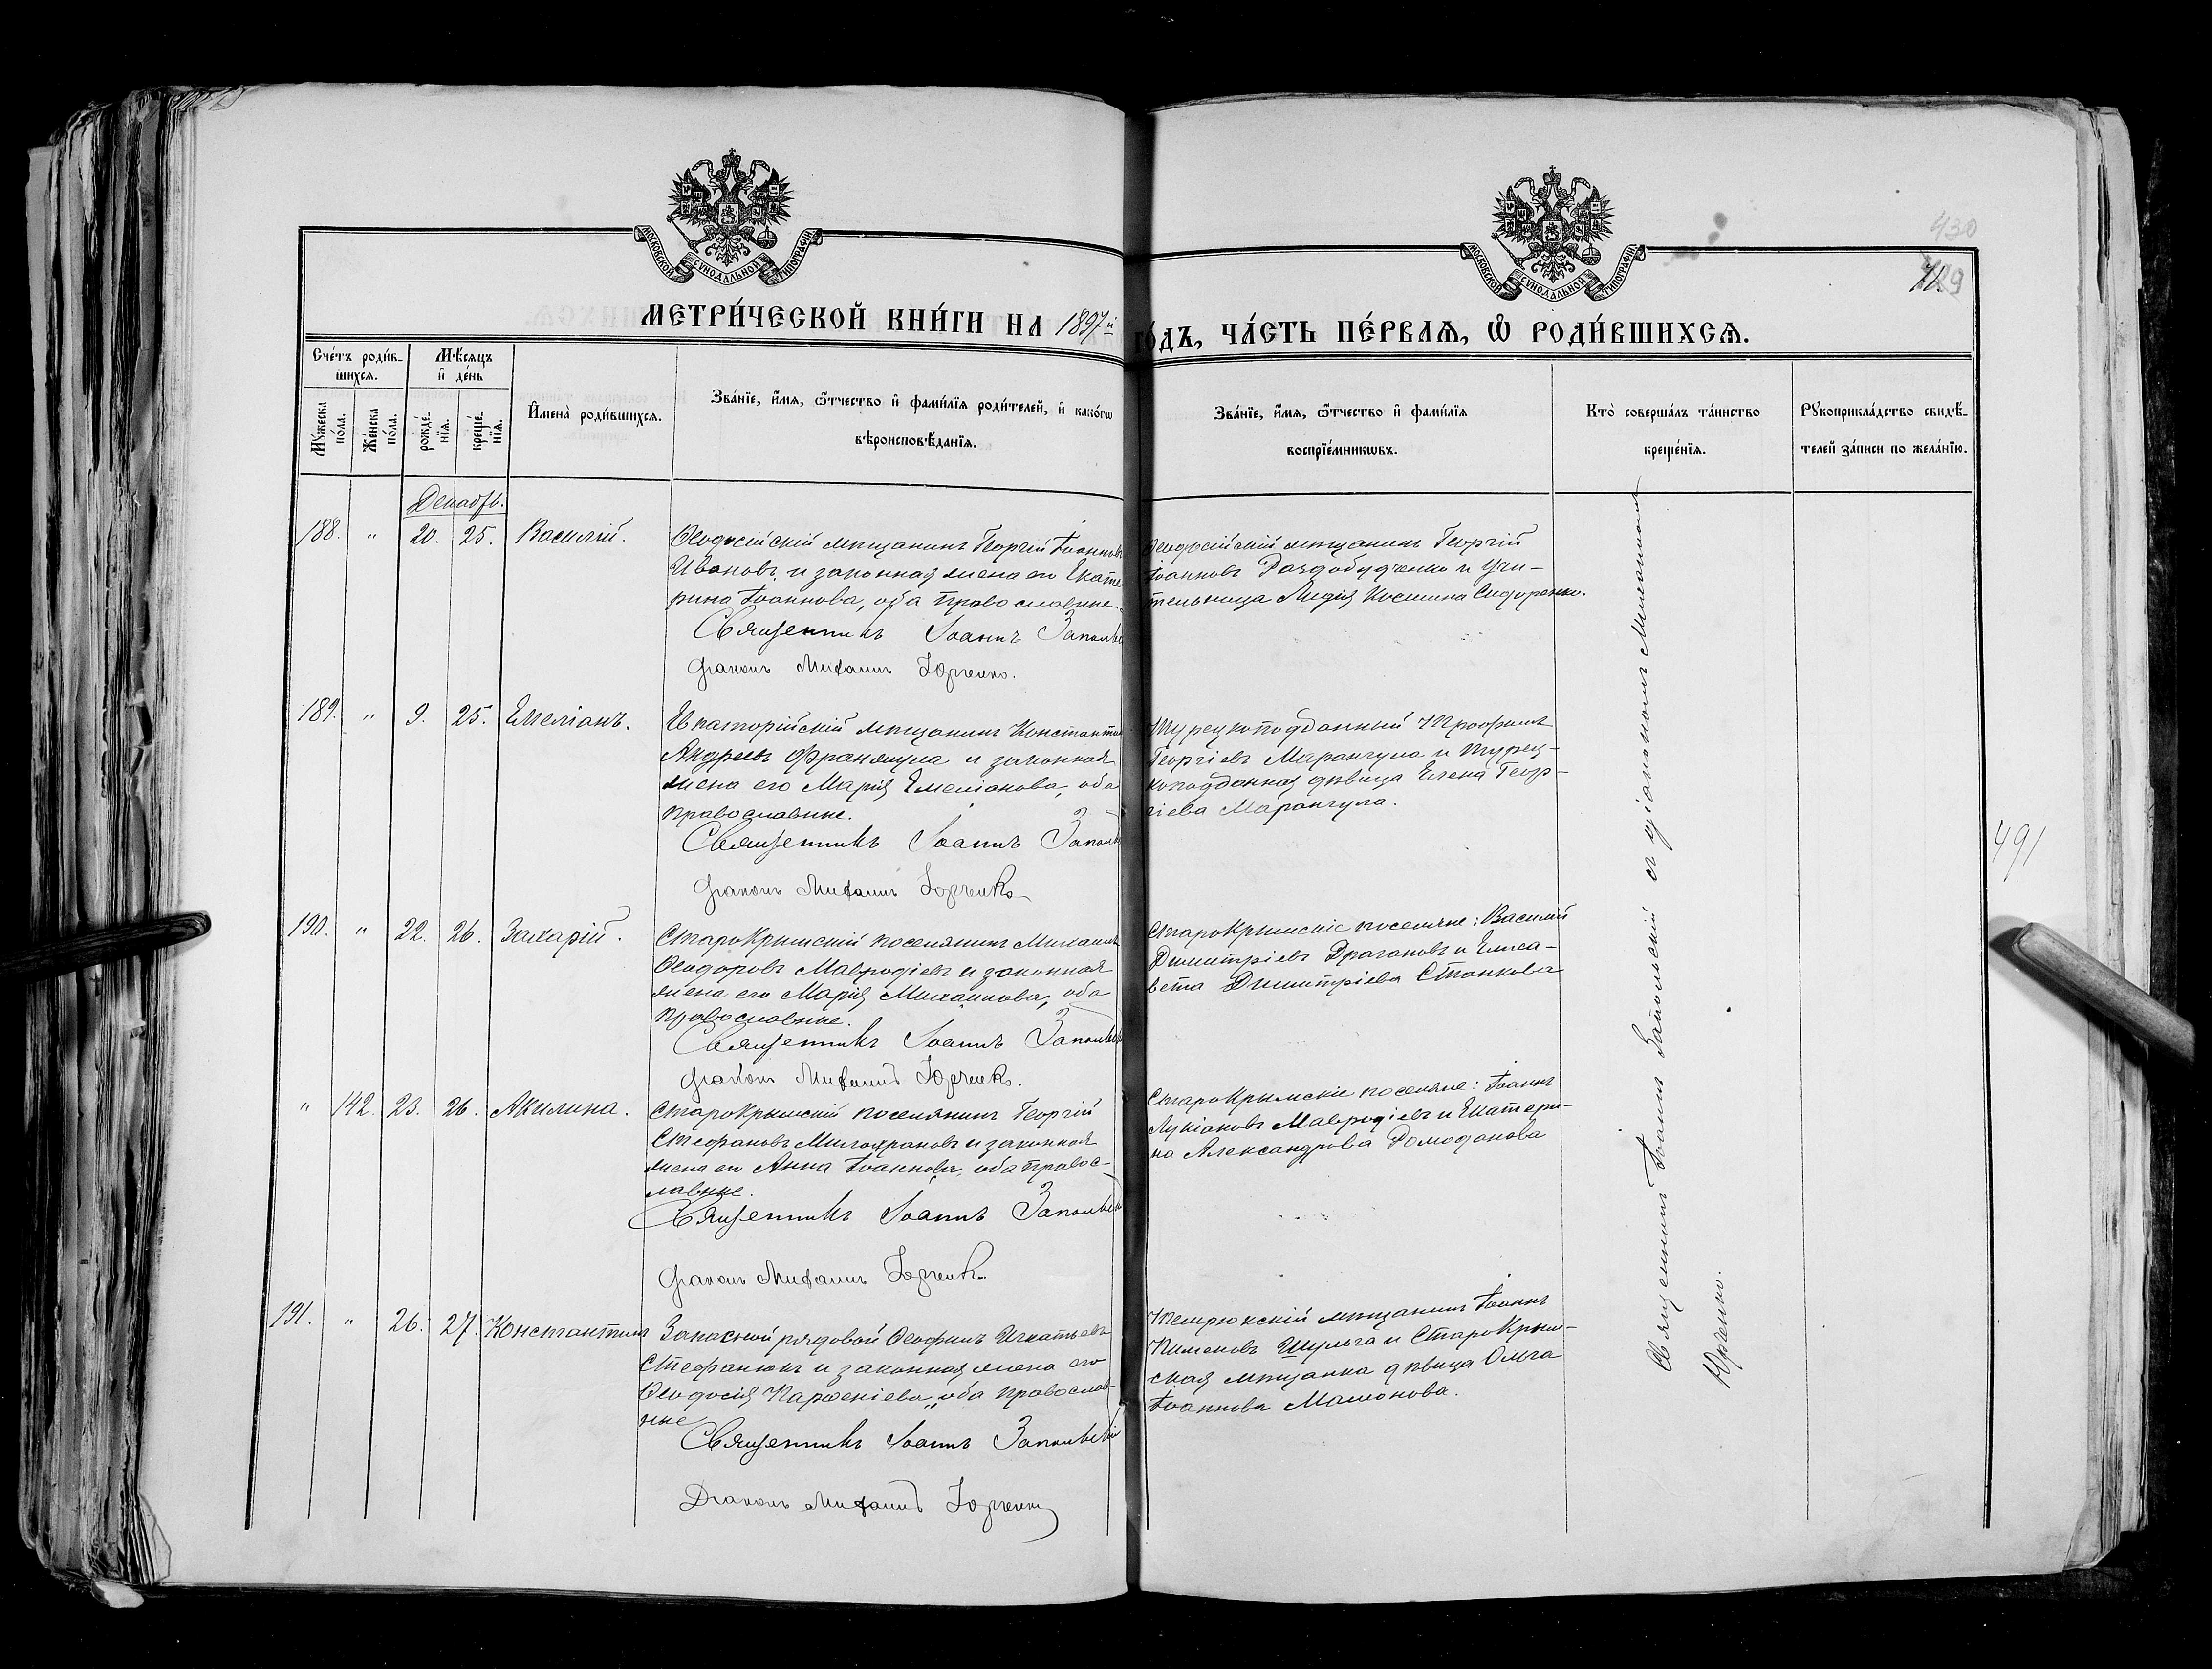 МОСКОВСКОЙ СУНОДАЛЬНОЙ ТИПОГРАФІИ
МОСКОВСКОЙ СУНОДАЛЬНОЙ ТИПОГРАФІИ
430
429
МЕТРИ́ЧЕСКОЙ КНИ́ГИ НА 1897й
ГО́ДЪ, ЧА́СТЬ ПЕ́РВАѦ, Ѡ҆ РОДИ́ВШИХСѦ.
Сче́тъ роди́в-
шихсѧ.
Мѣ́сѧцъ
и҆ де́нь
Мꙋ́жеска
по́ла.
Же́нска
по́ла.
рожде́-
нїѧ.
креще́-
нїѧ.
И҆мена̀ роди́вшихсѧ.
Зва́нїе, и҆́мѧ, ѻ҆́тчество и҆ фами́лїѧ роди́телей, и҆ како́гѡ
вѣроисповѣ́данїѧ.
Зва́нїе, и҆́мѧ, ѻ҆́тчество и҆ фами́лїѧ
воспрїе́мникѡвъ.
Кто̀ соверша́лъ та́инство
креще́нїѧ.
Рꙋкоприкла́дство свидѣ́-
телей за́писи по жела́нїю.
Декабрь.
188. " 20. 25. Василій.
Ѳеодосійскій мѣщанинъ Георгій Іоанновъ
Ивановъ и законная жена его Екате-
рина Іоаннова, оба православные.
Священникъ Іоаннъ Запольскі
Діаконъ Михаилъ Юрченко.
Ѳеодосійскій мѣщанинъ Георгій
Іоанновъ Раздобудченко и учи-
тельница Лидія Косьмина Сидоренко.
189. " 9. 25. Емеліанъ.
Евпаторійскій мѣщанинъ Константинъ
Андреевъ Франжула и законная
жена его Марія Емеліанова, оба
православные.
Священникъ Іоаннъ Запольск
Діаконъ Михаилъ Юрченко
Турецкоподданный Трофимъ
Георгіевъ Марангула и турец-
коподданная дѣвица Елена Геор-
гіева Марангула.
491
190. " 22. 26. Захарій.
Старокрымскій поселянинъ Михаилъ
Ѳеодоровъ Мавродіевъ и законная
жена его Марія Михаилова, оба
православные.
Священникъ Іоаннъ Запольскі
Діаконъ Михаилъ Юрченко.
Старокрымскіе поселяне: Василій
Димитріевъ Драгановъ и Елиса-
вета Димитріева Станкова
" 142. 23. 26. Акилина.
Старокрымскій поселянинъ Георгій
Стефановъ и законная
жена его Анна Іоаннова, оба правос-
лавные.
Священникъ Іоаннъ Запольскі
Діаконъ Михаилъ Юрченко.
Старокрымскіе поселяне: Іоаннъ
Лукіановъ Мавродіевъ и Екатери-
на Александрова Домоданова
191. " 26. 27. Константинъ
Запасной рядовой Ѳеофилъ Игнатьевъ
Стефанюкъ и законная жена его
Ѳеодосія Парѳеніева, оба православ-
ные
Священникъ Іоаннъ Запольскій
Діаконъ Михаилъ Юрченко
Темрюкскій мѣщанинъ Іоаннъ
Пименовъ Шульга и Старокрым-
ская мѣщанка дѣвица Ольга
Іоаннова Мамонова.
Священникъ Іоаннъ Запольскій съ діакономъ Михаиломъ
Юрченко.